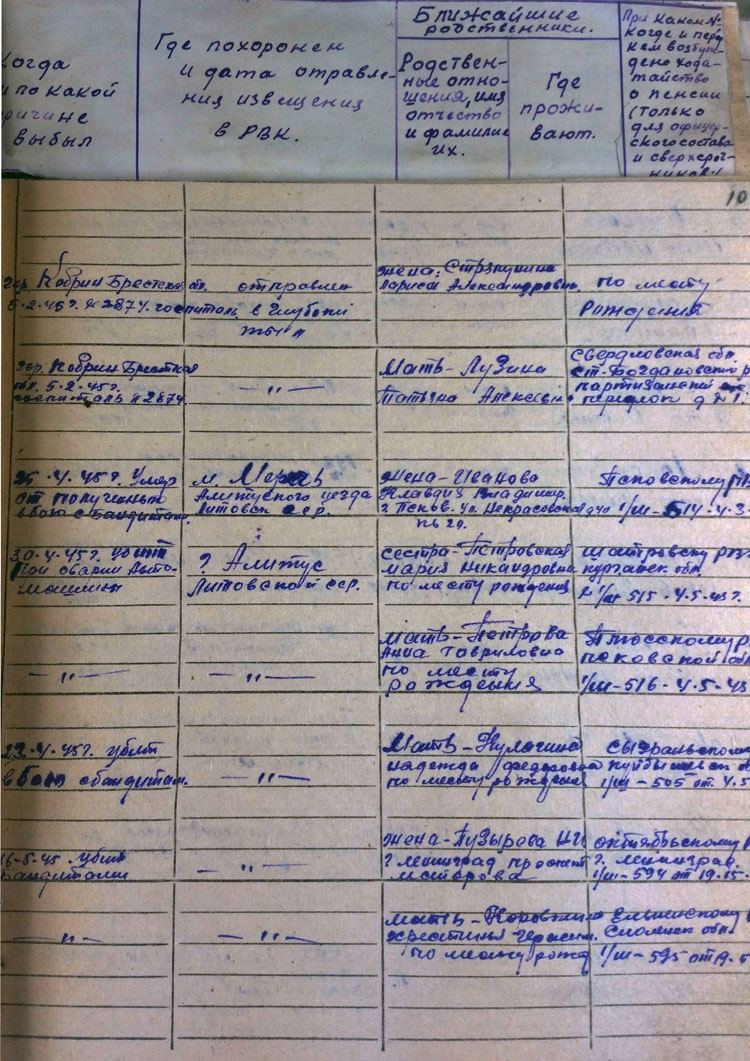 Когда
и по какой
причине
выбыл
Где похоронен
и дата отравле-
ния извещения
в РВК.
Ближайшие
родственники.
Родствен-
ные отно-
шения, имя
отчество
и фамилие
их.
Где
прожи-
вают.
При каком №
когде и пере
кем возбуж-
дено хода-
тайство
о пенсии
(только
для офицер-
ского состава
и сверхсроч-
ников.)
10
гор. Кобрин Брестской об.
5.2.45г. № 2874. госпиталь
отправлен
в глубокий
тыл
жена:
Лариса Александровна
по месту
Рождения
гор. Кобрин Брестская
5.2.45г.
госпиталь № 2874.
— " —
Мать - Лузина
Татьяна Алексеевна
Свердловская обл.
ст. Богдановский
партизанский
д № 1.
25.4.45г. Умер
от полученых
в бою с бандитами.
м. Мереч
Алитусского уезда
Литовск сср.
жена - Иванова
Клавдия Владимир.
г. Псков. ул. Некрасовская
Псковскому
1/ш - 514 - 4.5
30.4.45г. убит
При аварии Авто-
машины
г. Алитус
Литовской сср.
сестра - Петровская
мария никандровна
по месту рождения
шатровску
курганск обл.
1/ш - 515 - 4.5.45г.
— " —
— " —
Мать - Петрова
Анна Гавриловна
по месту
рождения
Плюсскому
псковской
1/ш - 516 - 4-5-45
22.4.45г. убит
в бою с бандитам.
— " —
Мать - Кулагина
надежда федоровна
по месту рождения
сызраньскому
куйбышевск
1/ш - 505 от 4.5
16-5-45 убит
Бандитами
— " —
жена - Пузырева Н.И.
г. ленинград проспект
октябрьскому
г. ленинград.
1/ш - 594 от 19.5
— " —
— " —
мать -
по месту рожд
Ельнинскому
Смоленск обл.
1/ш - 595 от 19.5